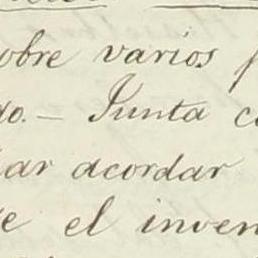 sobre varios
do. — Junta
acordar
el inven